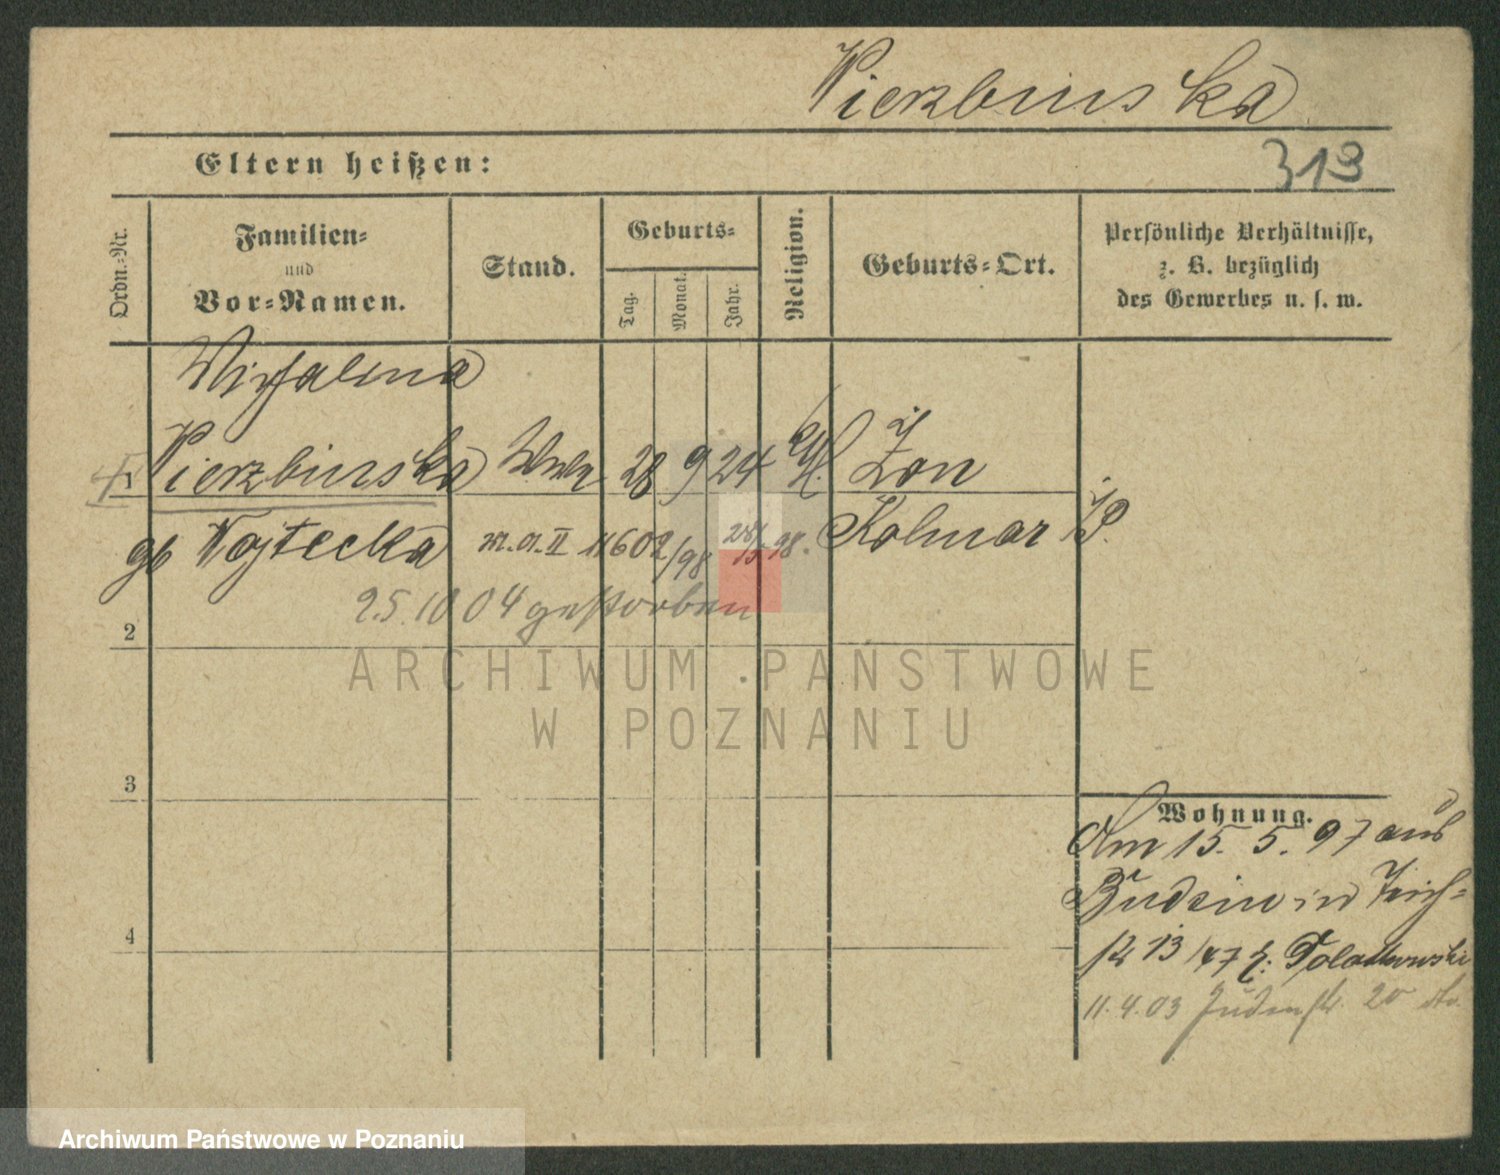 Pierzbinska
Eltern heißen:
313
Ordn.-Nr.
Familien-
und
Vor-Namen.
Stand.
Geburts-
Tag.
Monat.
Jahr.
Religion.
Geburts-Ort.
Persönliche Verhältnisse,
z. B. bezüglich
des Gewerbes u. s. w.
1 Pierzbinska 28 9 24 Zon
gb Wojtecka 11602/98 98. Kolmar i/P.
25.10 04 gestorben
2
3
4
Wohnung.
Am 15. 5. 97 aus
Budsin in
13 /47 b.
11.4.03 Judenstr. 20
ARCHIWUM PAŃSTWOWE
W POZNANIU
Archiwum Państwowe w Poznaniu